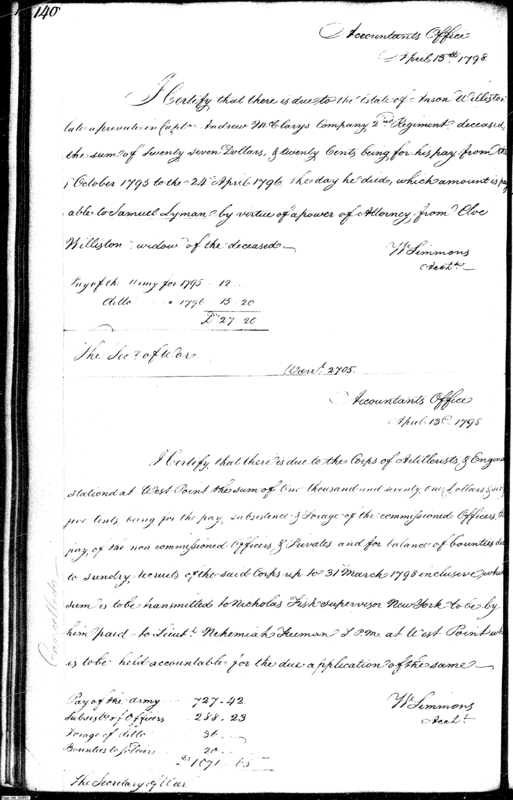 140
Accountants Office
April 13th 1798
I Certify that there is due to the Estate of Anson Williston
late a private in Captn. Andrew McClarys Company 2nd Regiment deceased,
the sum of Twenty seven Dollars, & twenty Cents being for his pay from the
1 October 1795 to the 24th April 1796, the day he died, which amount is pay
able to Samuel Lyman by vertue of a power of Attorney from Cloe
Williston widow of the deceased
Wm Simmons
Acctt.
Pay of the Army for 1795 12 ..
ditto " 1796 15 20
Ds 27 20
The Secy. of War
Warrt. 2705
Accountants Office
April 13th 1798
I Certify, that there is due to the Corps of Artillerists & Engine
stationd at West Point the sum of One thousand and seventy one Dollars &
five Cents being for the pay, subsistence & Forage of the commissioned Officers, the
pay, of the non commissioned Officers, & Privates and for balance of bounties due
to sundry, recruits of the said Corps up to 31st March 1798 inclusive which
sum is to be transmitted to Nicholas Fish supervisor New York to be by
him paid to Lieutt. Nehemiah Freeman S P M. at West Point who
is to be held accountable for the due application of the same
Wm Simmons
Acctt.
Pay of the army 727.42
Subsiste of Officers 288.23
Forage of ditto
Bounties to soldiers 20
Ds 1071 65
The Secretary of War
Cancelled